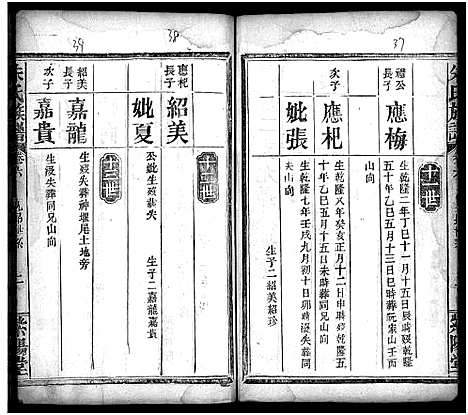 37
禮公長子
應梅
生乾隆二年丁巳十一月十五日辰時歿乾隆
五十年乙巳五月十三日巳時葬阮家山壬丙
山向
次子
應杞
生乾隆八年癸亥正月十二日申時歿乾隆五
十年乙巳五月十五日未時葬同兄山向
妣張
生乾隆七年壬戌九月初十日戌時歿葬同
夫山向
生子二紹美紹珍
38
應杞長子
紹美
十二世
妣夏
公妣生歿葬失
生子二嘉龍嘉貴
十三世
39
紹美長子
嘉龍
生歿失葬神堰尾土地旁
次子
嘉貴
生歿失葬同兄山向
朱氏族譜